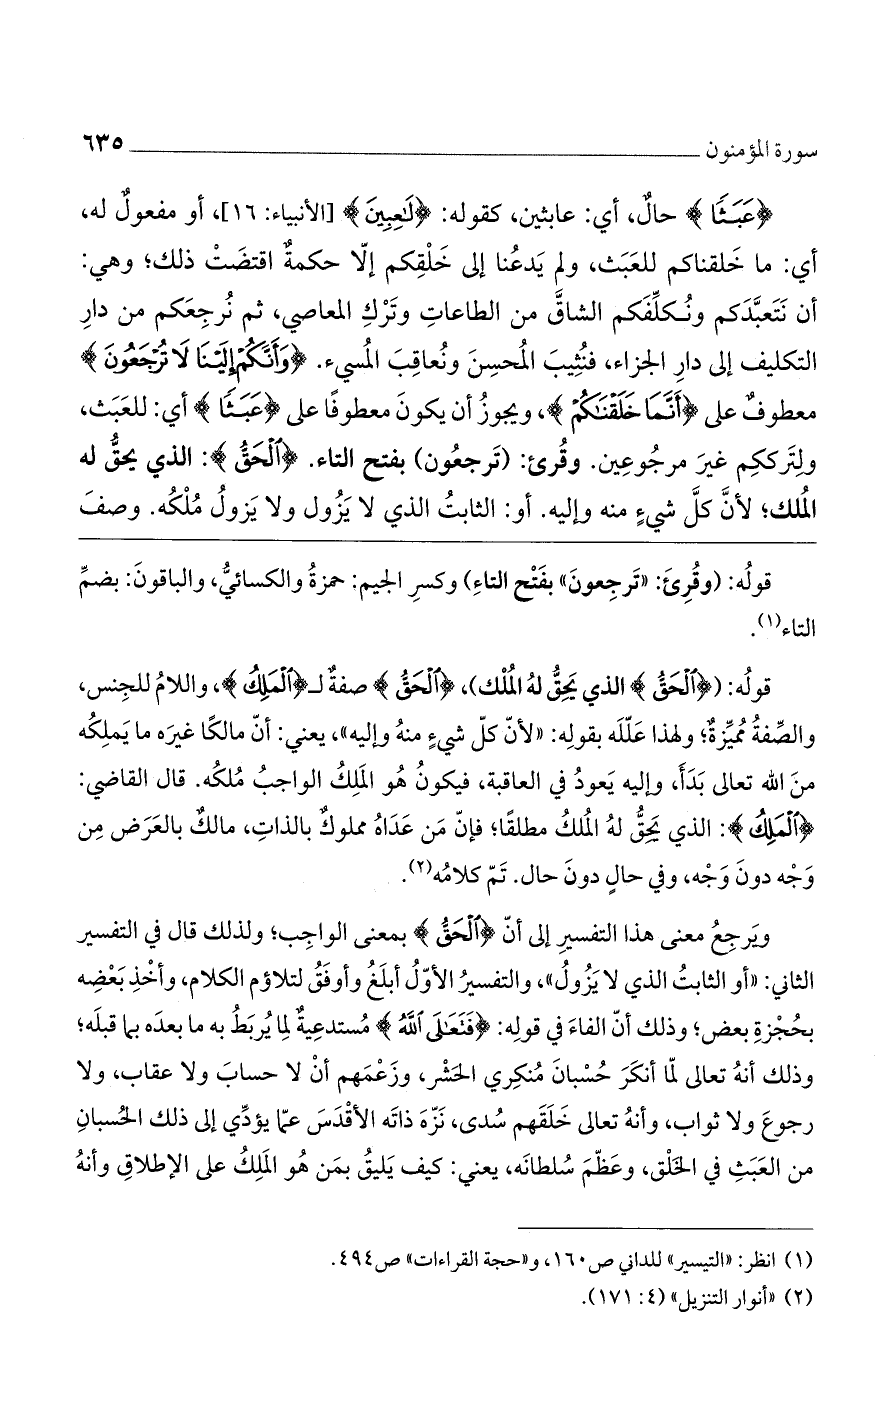 سورة المؤمنون ٦٣٥
﴿عَبَثًا﴾ حالٌ، أي: عابثين، كقوله: ﴿لَٰعِبِينَ﴾ [الأنبياء: ١٦]، أو مفعولٌ له،
أي: ما خَلقناكم للعَبَث، ولم يَدعُنا إلى خَلْقِكم إلّا حكمةٌ اقتضَتْ ذلك؛ وهي:
أن نَتَعبَّدَكم ونُكلِّفَكم الشاقَّ من الطاعاتِ وتَرْكِ المعاصي، ثم نُرجِعَكم من دارِ
التكليف إلى دارِ الجزاء، فنُثِيبَ المُحسِنَ ونُعاقِبَ المُسيء. ﴿وَأَنَّكُمْ إِلَيْنَا لَا تُرْجَعُونَ﴾
معطوفٌ على ﴿أَنَّمَا خَلَقْنَٰكُمْ﴾، ويجوزُ أن يكونَ معطوفًا على ﴿عَبَثًا﴾ أي: للعَبَث،
ولِتَرككِم غيرَ مرجُوعِين. وقُرئ: (تَرجعُون) بفتح التاء. ﴿ٱلْحَقُّ﴾: الذي يحقُّ له
المُلك؛ لأنَّ كلَّ شيءٍ منه وإليه. أو: الثابتُ الذي لا يَزُول ولا يَزولُ مُلْكُه. وصفَ
قولُه: (وقُرِئَ: «تَرجِعونَ» بفَتْح التاءِ) وكسرِ الجيم: حمزةُ والكسائيُّ، والباقونَ: بضمِّ
التاء(١).
قولُه: (﴿ٱلْحَقُّ﴾ الذي يَحِقُّ لهُ المُلْك)، ﴿ٱلْحَقُّ﴾ صفةٌ لـ﴿ٱلْمَلِكُ﴾، واللامُ للجِنس،
والصِّفةُ مُميِّزةٌ؛ ولهذا عَلّلَه بقولِه: «لأنّ كلّ شيءٍ منهُ وإليه»، يعني: أنّ مالكًا غيرَه ما يَملِكُه
منَ الله تعالى بَدَأَ، وإليه يَعودُ في العاقبة، فيكونُ هُو المَلِكُ الواجبُ مُلكُه. قال القاضي:
﴿ٱلْمَلِكُ﴾: الذي يَحِقُّ لهُ المُلكُ مطلقًا؛ فإنّ مَن عَدَاهُ مملوكٌ بالذاتِ، مالكٌ بالعَرَض مِن
وَجْه دونَ وَجْه، وفي حالٍ دونَ حال. تَمّ كلامُه(٢).
ويَرجِعُ معنى هذا التفسيرِ إلى أنّ ﴿ٱلْحَقُّ﴾ بمعنى الواجِب؛ ولذلك قال في التفسير
الثاني: «أو الثابتُ الذي لا يَزُولُ»، والتفسيرُ الأوّلُ أبلَغُ وأوفَقُ لتلاؤم الكلام، وأخْذِ بَعْضِه
بحُجْزةِ بعض؛ وذلك أنّ الفاءَ في قولِه: ﴿فَتَعَٰلَى ٱللَّهُ﴾ مُستدعِيةٌ لِما يُربَطُ به ما بعدَه بما قبلَه؛
وذلك أنهُ تعالى لمّا أنكَرَ حُسْبانَ مُنكِري الحَشْر، وزَعْمَهم أنْ لا حسابَ ولا عقاب، ولا
رجوعَ ولا ثواب، وأنهُ تعالى خَلَقَهم سُدى، نَزّهَ ذاتَه الأقْدَسَ عمّا يؤدِّي إلى ذلك الحُسبانِ
من العَبَثِ في الخَلْق، وعَظّمَ سُلطانَه، يعني: كيف يَليقُ بمَن هُو المَلِكُ على الإطلاقِ وأنهُ
(١) انظر: «التيسير» للداني ص١٦٠، و«حجة القراءات» ص٤٩٤.
(٢) «أنوار التنزيل» (٤: ١٧١).